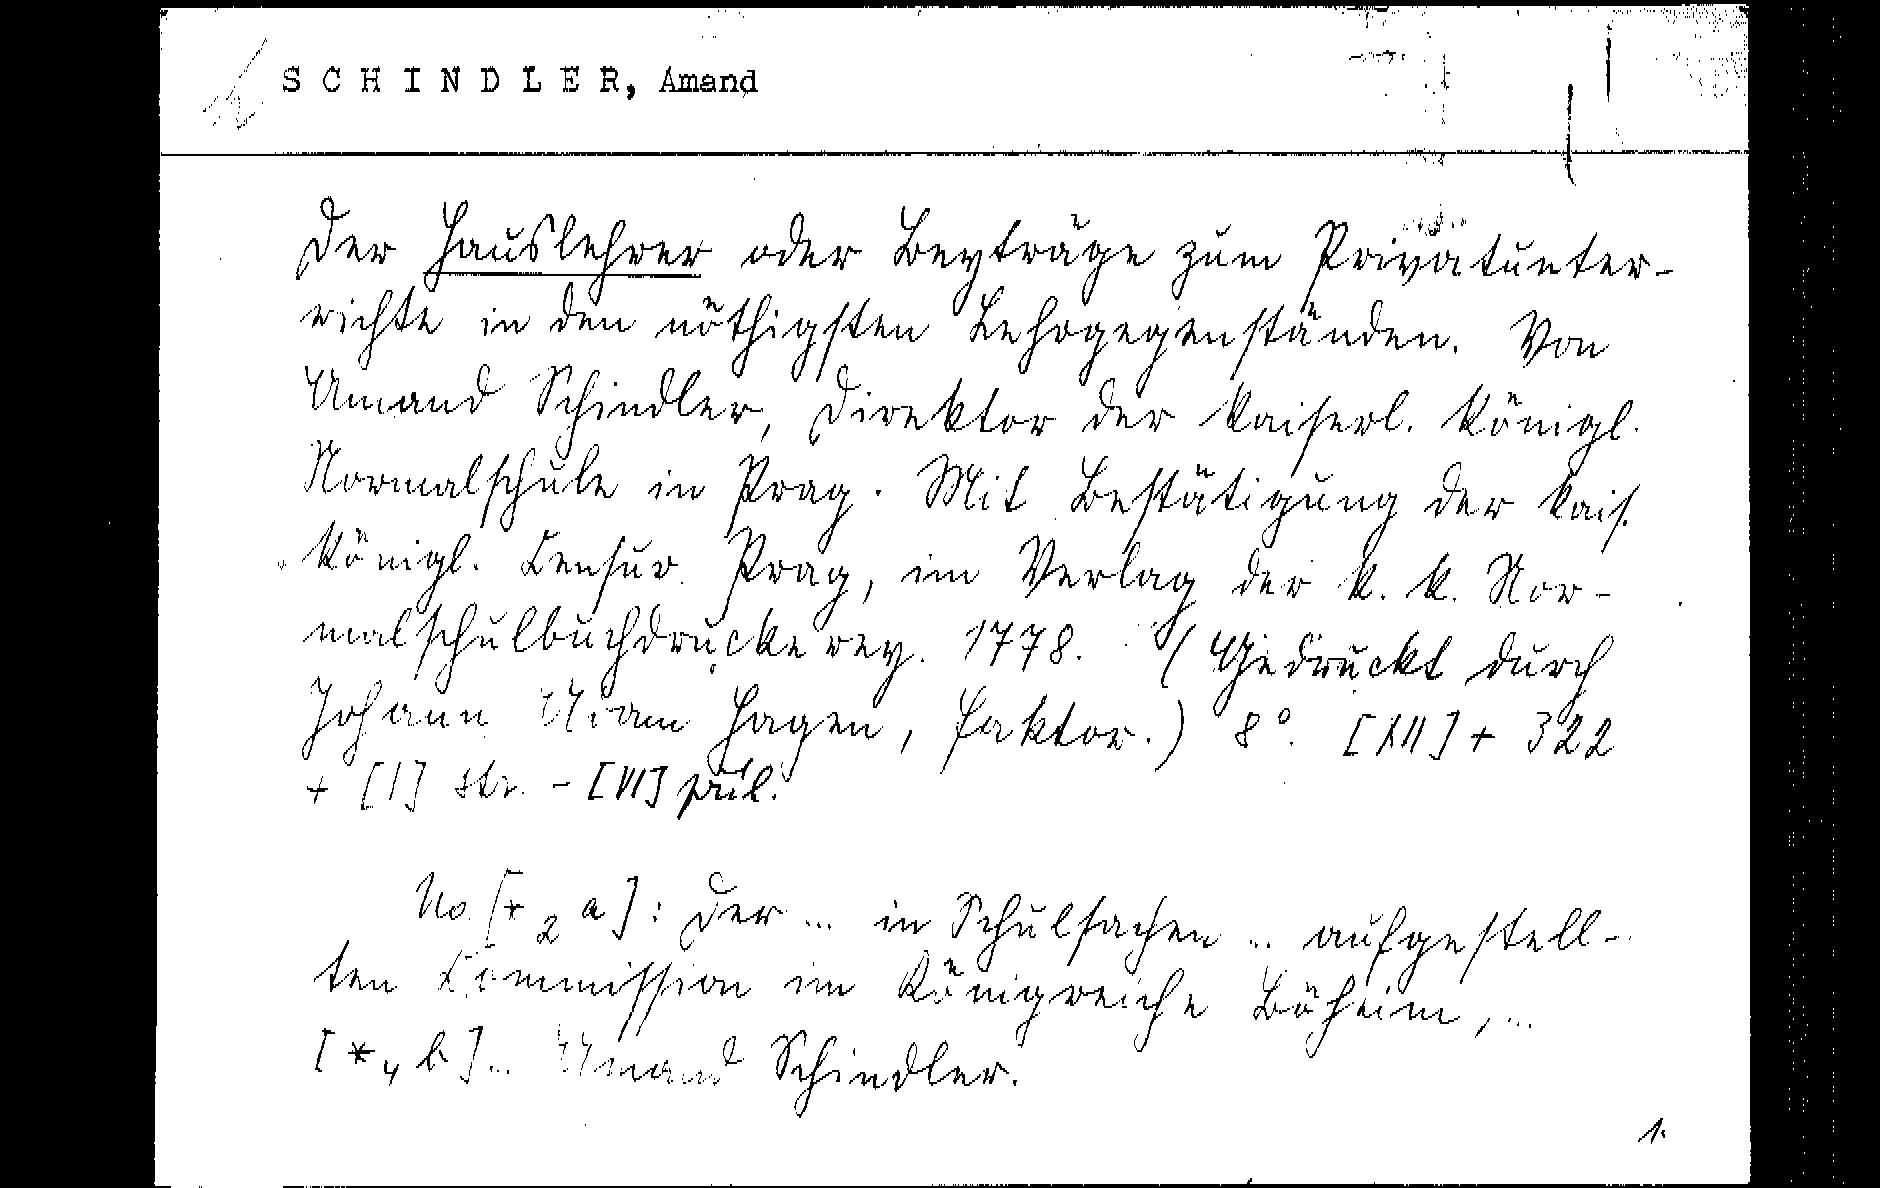 SCHINDLER, Amand
Der Hauslehrer oder Beyträge zum Privatunter-
richte in den nöthigsten Lehrgegenständen. Von
Amand Schindler, Direktor der kaiserl. königl.
Normalschule in Prag. Mit Bestätigung der kais.
königl. Censur. Prag, im Verlag der k. k. Nor-
malschulbuchdruckerey. 1778. (Gedruckt durch
Johann Adam Hagen, Faktor.) 8°. [XII] + 322
+ [I] str. - [VI] příl.
Na [*2a]: Der ... in Schulsachen ... aufgestell-
ten Commission im Königreiche Böheim, ...
[*4b]... Amand Schindler.
1.